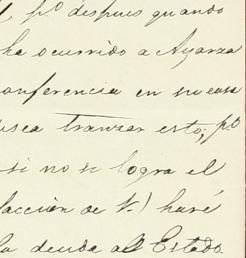 p.º despues quando
ha ocurrido a Ayarza
conferencia en su casa
sea tranzar esto; p.º
si no se logra el
facción de V.) haré
la deuda al Estado